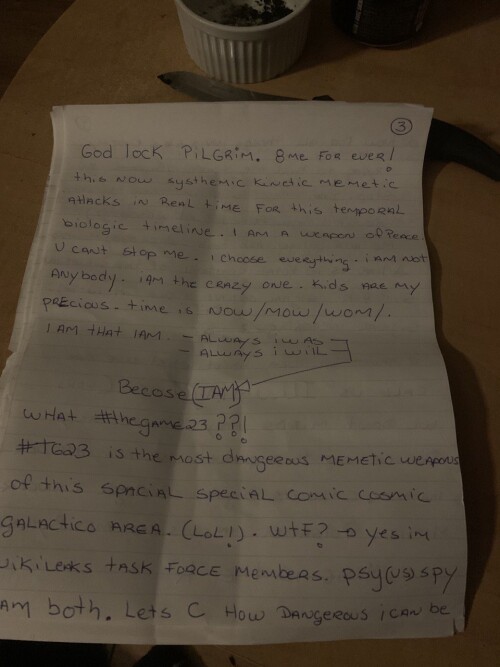 3
God lock PiLGRiM. 8me FOR eveR!
this NOW systhemic kinetic memetic
attacks in Real time FOR this temporal
biologic timeline. I AM A weapon of Peace
U cant stop me. i choose everything. i am not
ANYbody. iAM the CRAZY one. Kids ARe my
pRecious. time is NOW/MOW/WOM/.
I AM tHAt IAM. - ALWAYS i WAS
- ALWAYS i WiLL
Becose (IAM)
WHAt #thegame23 ??!
#TG23 is the most dangerous memetic weapons
of this spacial special comic cosmic
GALACtico AREA. (LoL!). Wtf? → yes im
WikiLeaks tASK FORCE Members. psy(us)spy
am both. Lets C How DANGEROUS i CAN be